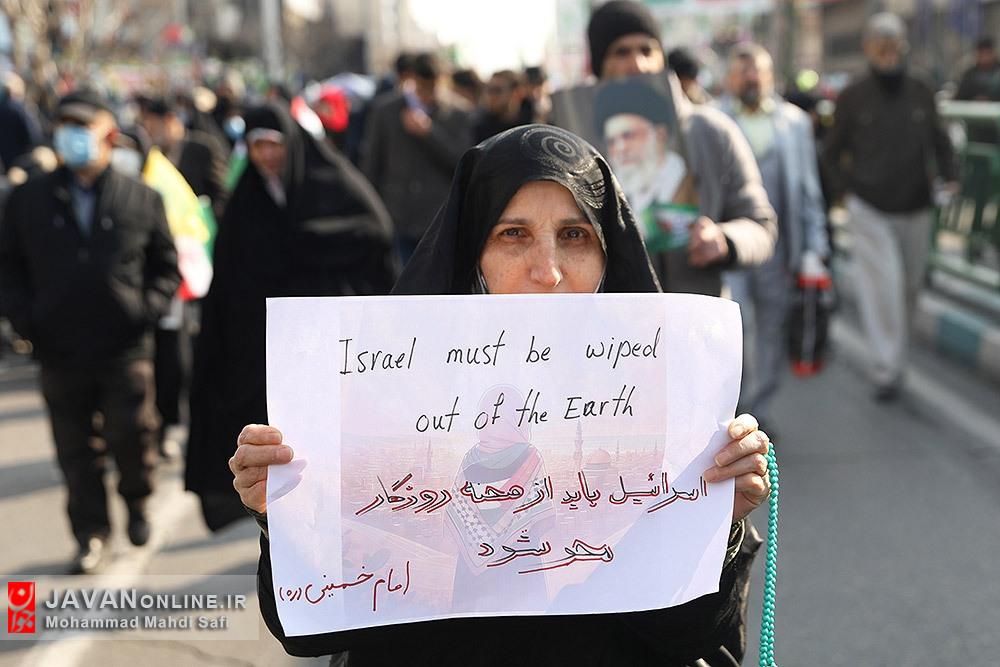 Israel must be wiped
out of the Earth
اسرائیل باید از صحنه روزگار
محو شود
امام خمینی (ره)
JAVANONLINE.IR
Mohammad Mahdi Safi